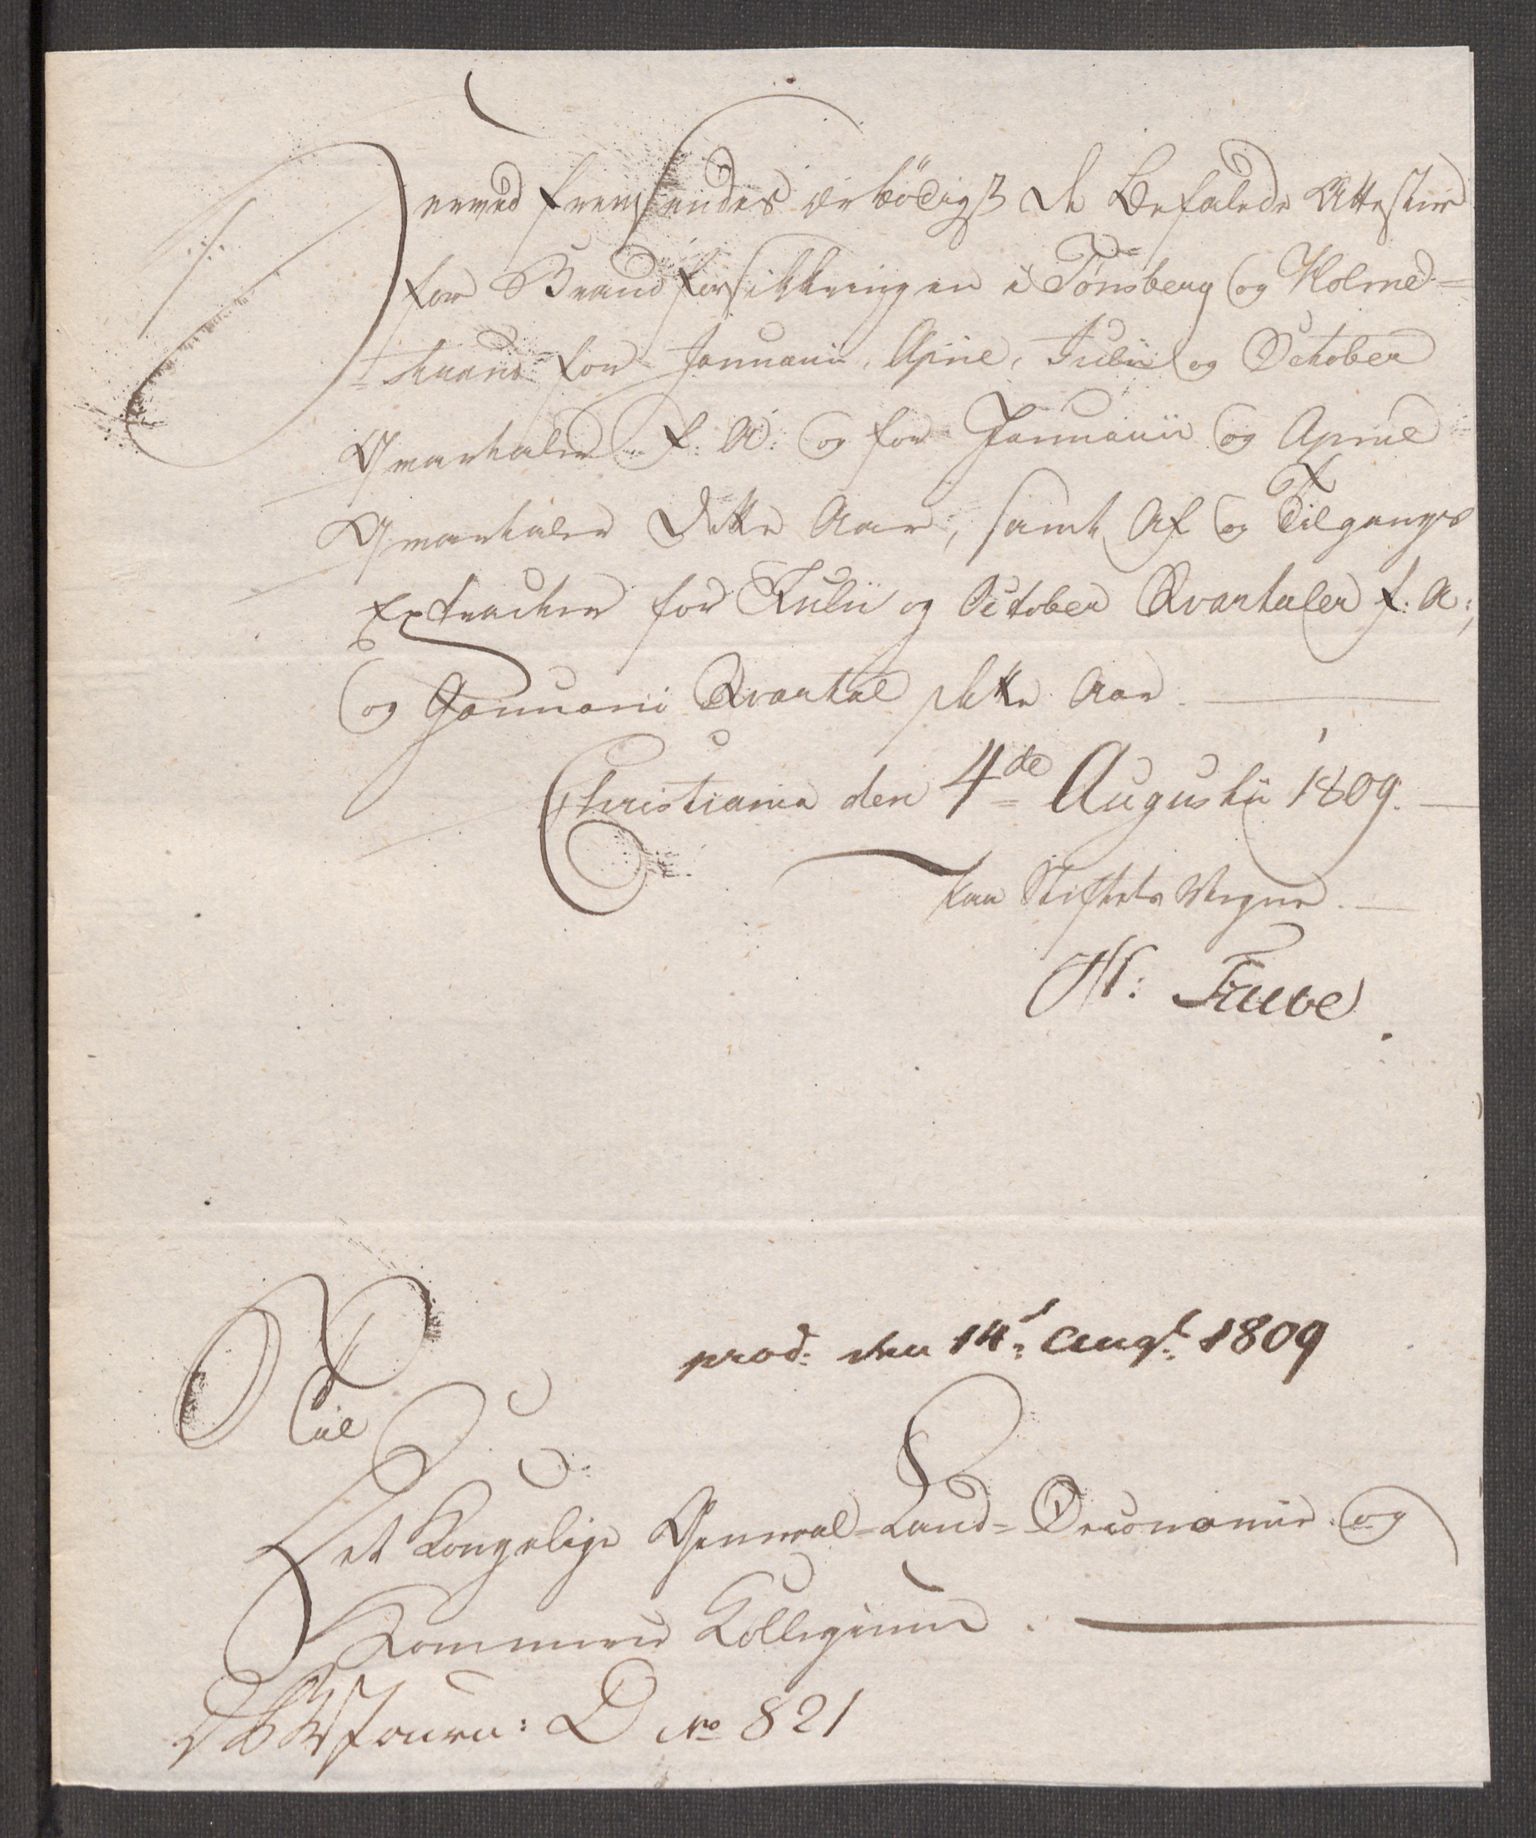 Herved fremsendes ærbödigst de befalede Attester
for Brandforsikkringen i Tønsberg og Holmed=
strand for Januarii, April, Julii og October
Qvartaler f. A. og for Januarii og April
Qvartaler dette Aar, samt Af og Tilgangs
Extracter for Julii og October Qvartaler f. A:,
og Januarii Qvartal dette Aar.
Christiania den 4de Augustii 1809.
paa Stiftets Vegne.
prod: den 14: Augt: 1809
Til
Det Kongelige General-Land-Oeconomie og
Kommerce Kollegium.
Journ: D No 821